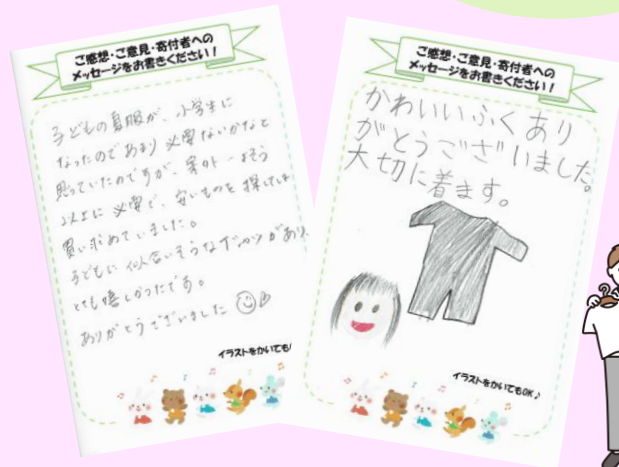 ご感想・ご意見・寄付者への
メッセージをお書きください！
子どもの夏服が、小学生に
なったのであまり必要ないかなと
思っていたのですが、案外
以上に必要で、安いものを探しては
買い求めていました。
子どもに似合いそうな があり、
とても嬉しかったです。
ありがとうございました
イラストをかいても
ご感想・ご意見・寄付者への
メッセージをお書きください！
かわいいふくあり
がとうございました。
大切に着ます。
イラストをかいてもOK♪